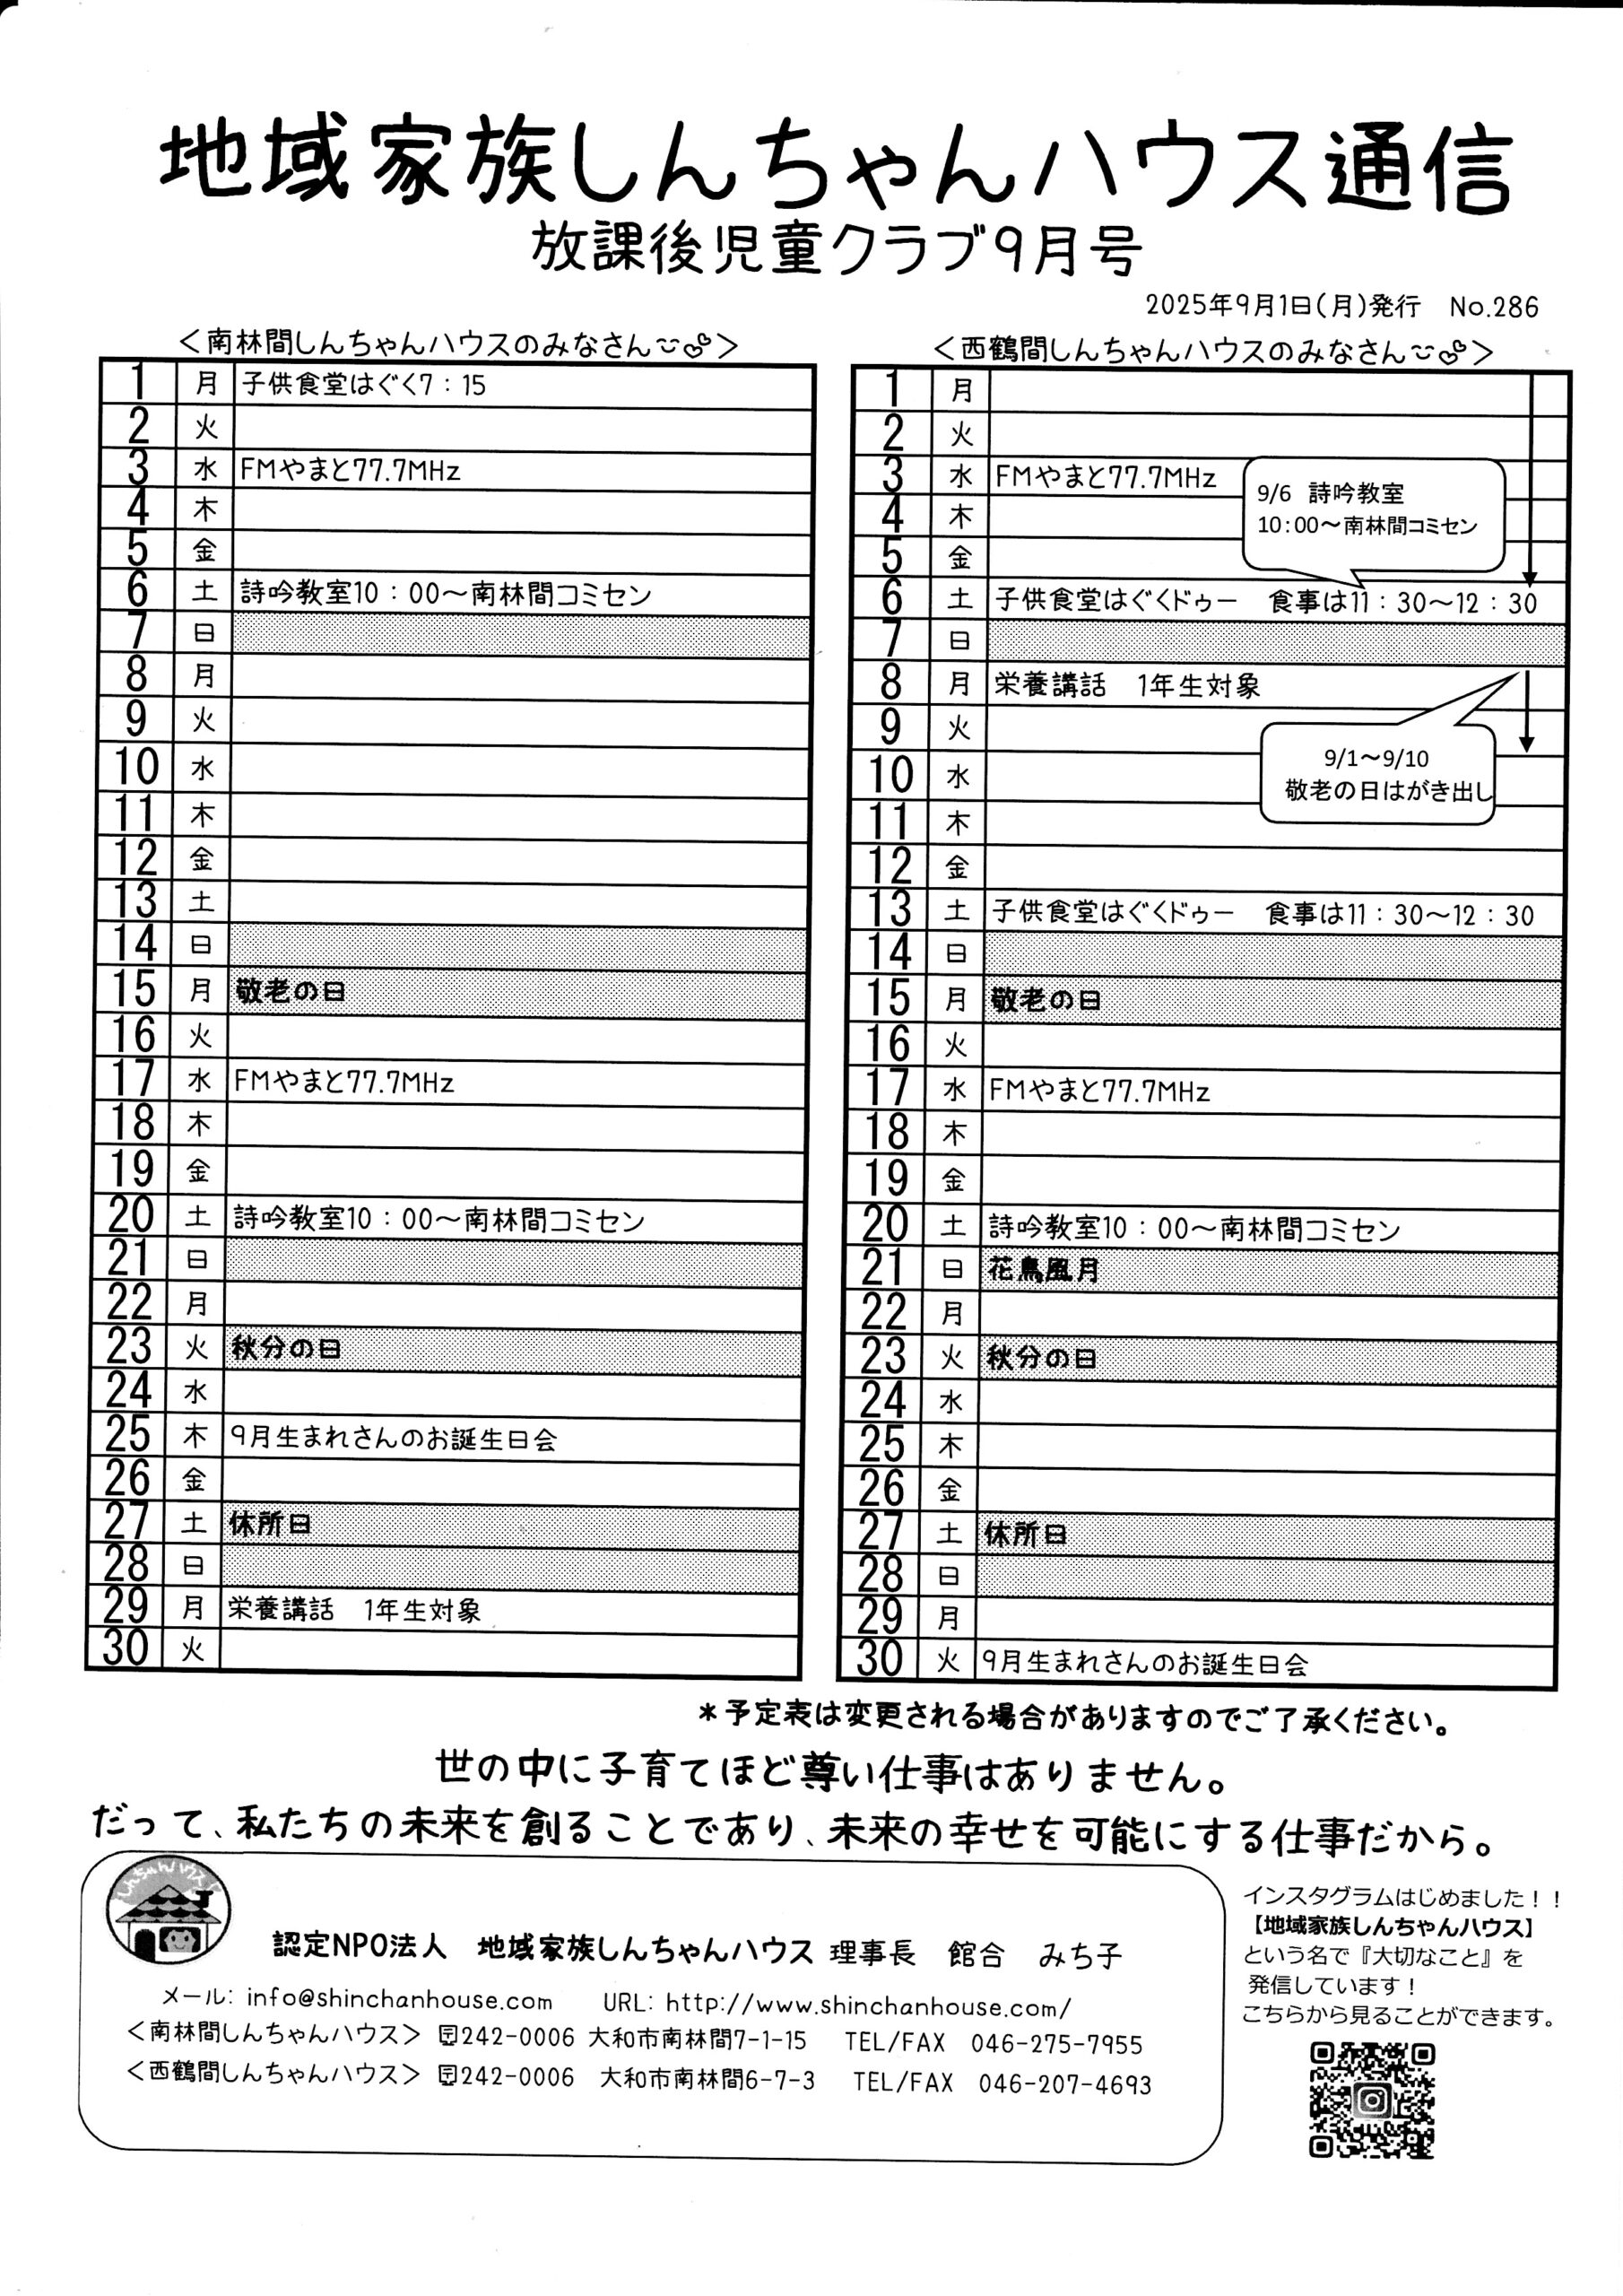 地域家族しんちゃんハウス通信
放課後児童クラブ9月号
2025年9月1日(月)発行　No.286
＜南林間しんちゃんハウスのみなさん＞
1 月 子供食堂はぐく7：15
2 火
3 水 FMやまと77.7MHz
4 木
5 金
6 土 詩吟教室10：00～南林間コミセン
7 日
8 月
9 火
10 水
11 木
12 金
13 土
14 日
15 月 敬老の日
16 火
17 水 FMやまと77.7MHz
18 木
19 金
20 土 詩吟教室10：00～南林間コミセン
21 日
22 月
23 火 秋分の日
24 水
25 木 9月生まれさんのお誕生日会
26 金
27 土 休所日
28 日
29 月 栄養講話　1年生対象
30 火
＜西鶴間しんちゃんハウスのみなさん＞
1 月
2 火
3 水 FMやまと77.7MHz
9/6 詩吟教室
10:00～南林間コミセン
4 木
5 金
6 土 子供食堂はぐくドゥー　食事は11：30～12：30
7 日
8 月 栄養講話　1年生対象
9 火
9/1～9/10
敬老の日はがき出し
10 水
11 木
12 金
13 土 子供食堂はぐくドゥー　食事は11：30～12：30
14 日
15 月 敬老の日
16 火
17 水 FMやまと77.7MHz
18 木
19 金
20 土 詩吟教室10：00～南林間コミセン
21 日 花鳥風月
22 月
23 火 秋分の日
24 水
25 木
26 金
27 土 休所日
28 日
29 月
30 火 9月生まれさんのお誕生日会
＊予定表は変更される場合がありますのでご了承ください。
世の中に子育てほど尊い仕事はありません。
だって、私たちの未来を創ることであり、未来の幸せを可能にする仕事だから。
しんちゃんハウス
認定NPO法人　地域家族しんちゃんハウス 理事長　館合　みち子
メール: info@shinchanhouse.com　URL: http://www.shinchanhouse.com/
＜南林間しんちゃんハウス＞ 〠242-0006 大和市南林間7-1-15　TEL/FAX　046-275-7955
＜西鶴間しんちゃんハウス＞ 〠242-0006　大和市南林間6-7-3　TEL/FAX　046-207-4693
インスタグラムはじめました！！
【地域家族しんちゃんハウス】
という名で『大切なこと』を
発信しています！
こちらから見ることができます。